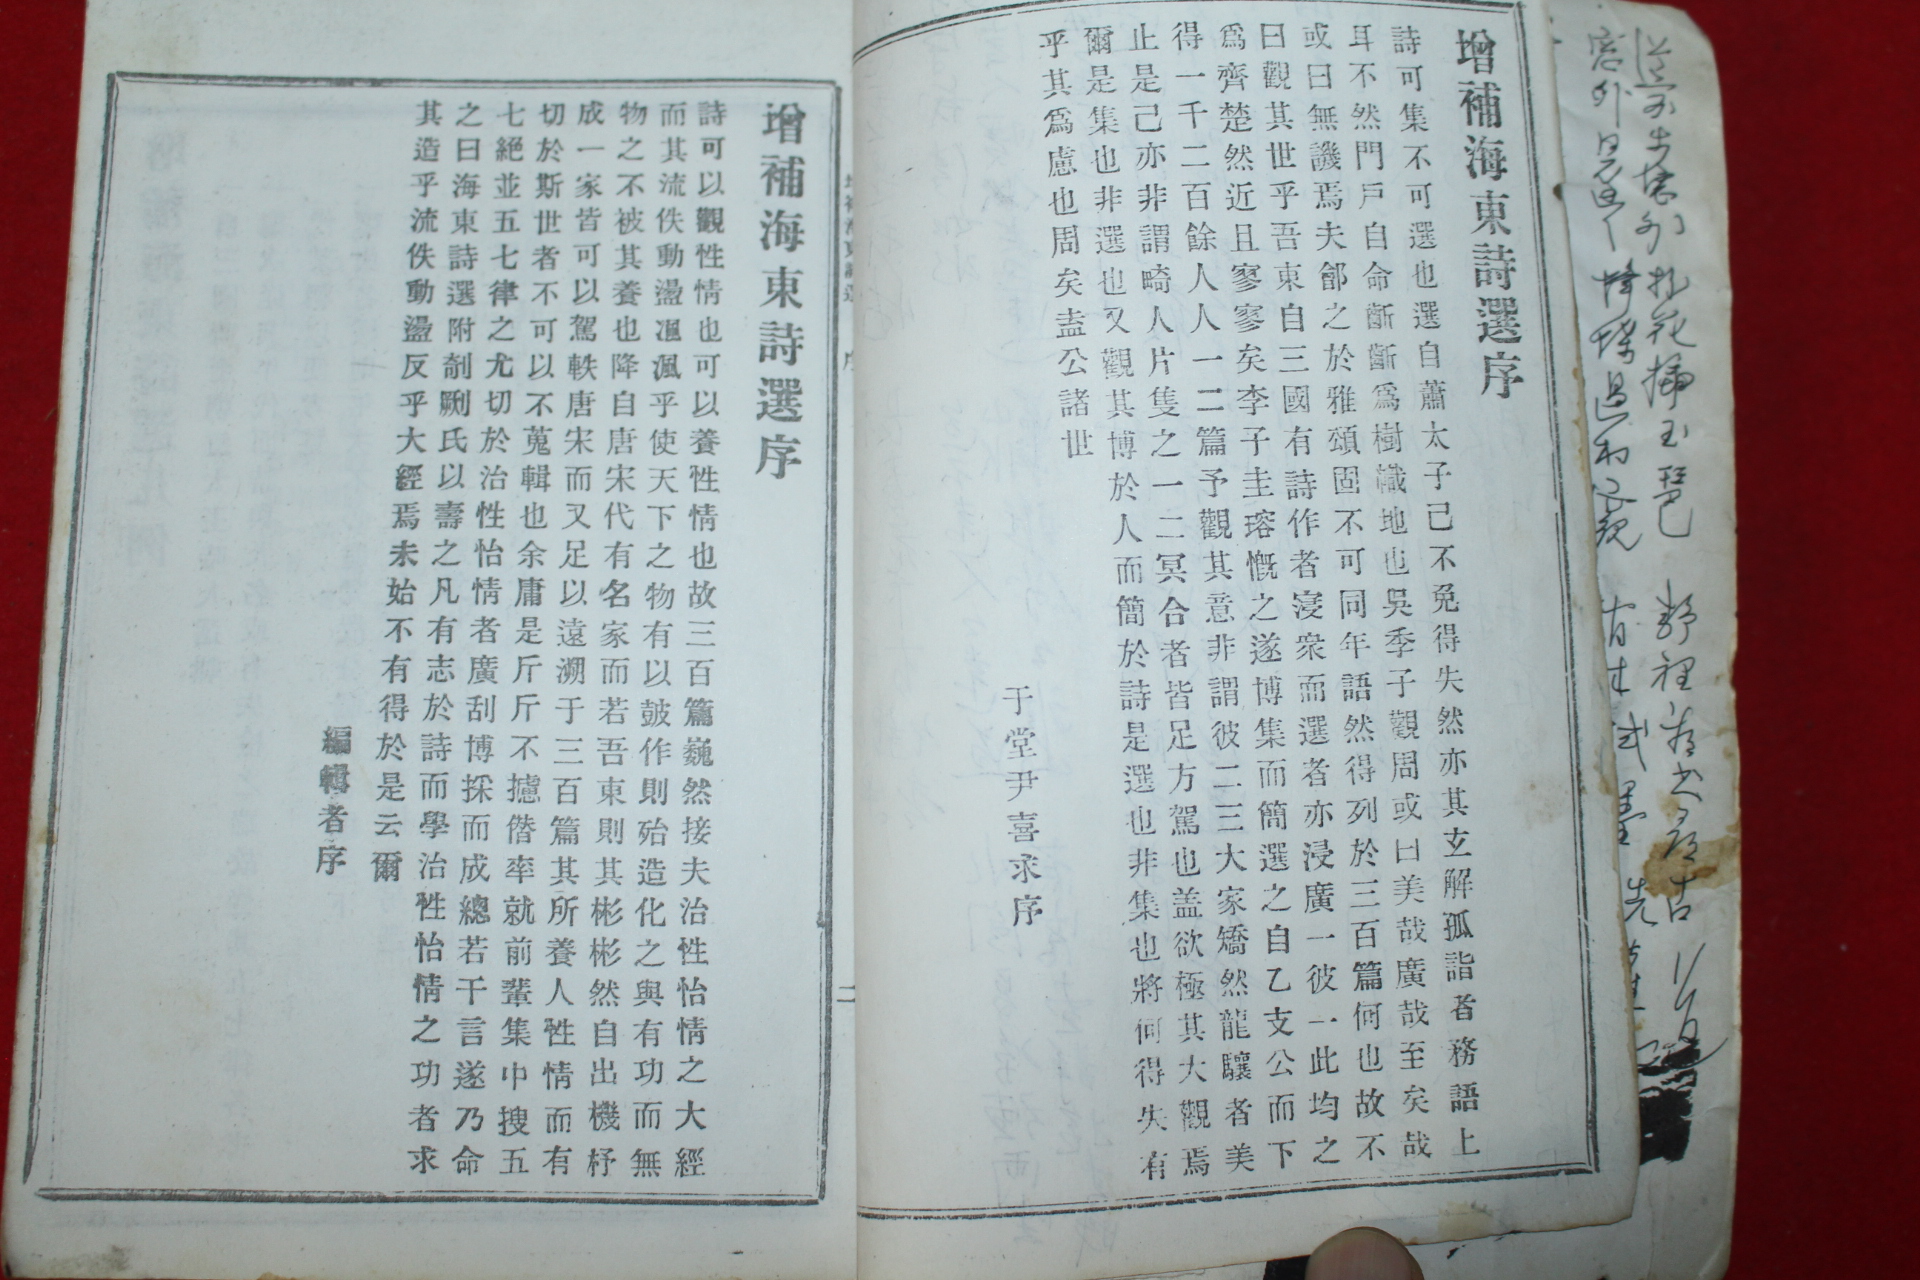 增補海東詩選序
詩可集不可選也選自蕭太子已不免得失然亦其玄解孤詣者務語上
耳不然門戶自命斷斷爲樹幟地也吳季子觀周或曰美哉廣哉至矣哉
或曰無譏焉夫鄶之於雅頌固不可同年語然得列於三百篇何也故不
曰觀其世乎吾東自三國有詩作者寖衆而選者亦浸廣一彼一此均之
爲齊楚然近且寥寥矣李子圭瑢慨之遂博集而簡選之自乙支公而下
得一千二百餘人人一二篇予觀其意非謂彼二三大家矯然龍驤者美
止是己亦非謂畸人片隻之一二冥合者皆足方駕也盖欲極其大觀焉
爾是集也非選也又觀其博於人而簡於詩是選也非集也將何得失有
乎其爲慮也周矣盍公諸世
于堂尹喜求序
增補海東詩選序
詩可以觀性情也可以養性情也故三百篇巍然接夫治性怡情之大經
而其流佚動盪渢渢乎使天下之物有以皷作則殆造化之與有功而無
物之不被其養也降自唐宋代有名家而若吾東則其彬彬然自出機杼
成一家皆可以駕軼唐宋而又足以遠溯于三百篇其所養人性情而有
切於斯世者不可以不蒐輯也余庸是斤斤不攄僭率就前輩集中搜五
七絕並五七律之尤切於治性怡情者廣刮博採而成總若干言遂乃命
之曰海東詩選附剞劂氏以壽之凡有志於詩而學治性怡情之功者求
其造乎流佚動盪反乎大經焉未始不有得於是云爾
編輯者序
二